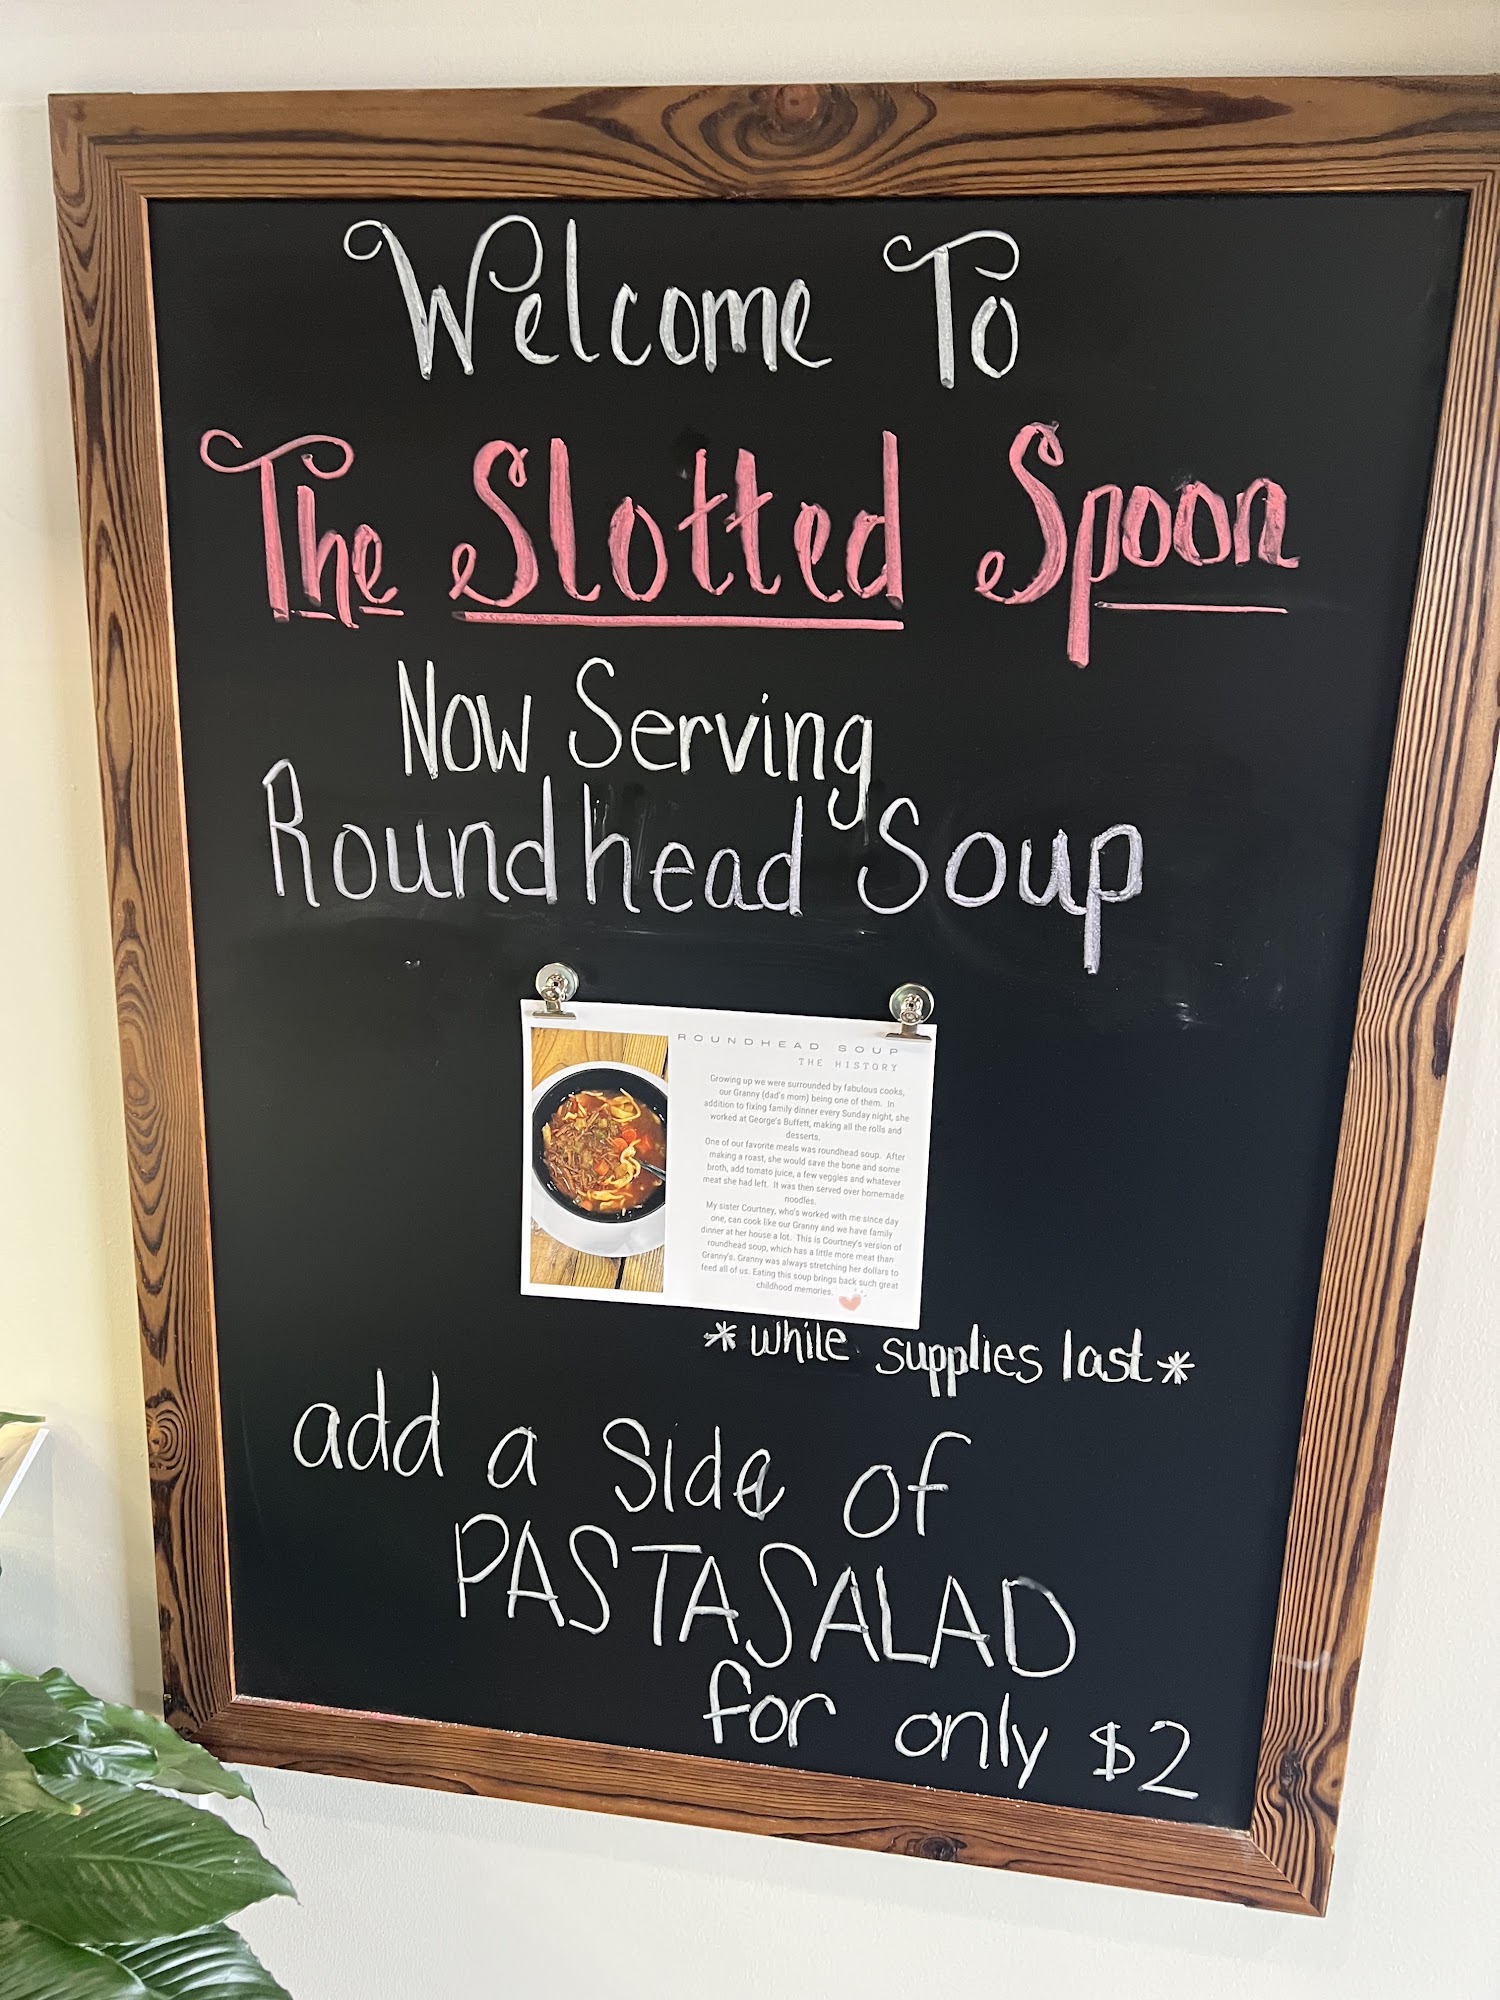 Welcome To
The Slotted Spoon
Now Serving
Roundhead Soup
ROUNDHEAD SOUP
THE HISTORY
Growing up we were surrounded by fabulous cooks,
our Granny (dad's mom) being one of them. In
addition to fixing family dinner every Sunday night, she
worked at George's Buffett, making all the rolls and
desserts.
One of our favorite meals was roundhead soup. After
making a roast, she would save the bone and some
broth, add tomato juice, a few veggies and whatever
meat she had left. It was then served over homemade
noodles.
My sister Courtney, who's worked with me since day
one, can cook like our Granny and we have family
dinner at her house a lot. This is Courtney's version of
roundhead soup, which has a little more meat than
Granny's. Granny was always stretching her dollars to
feed all of us. Eating this soup brings back such great
childhood memories.
*while supplies last*
add a side of
PASTASALAD
for only $2